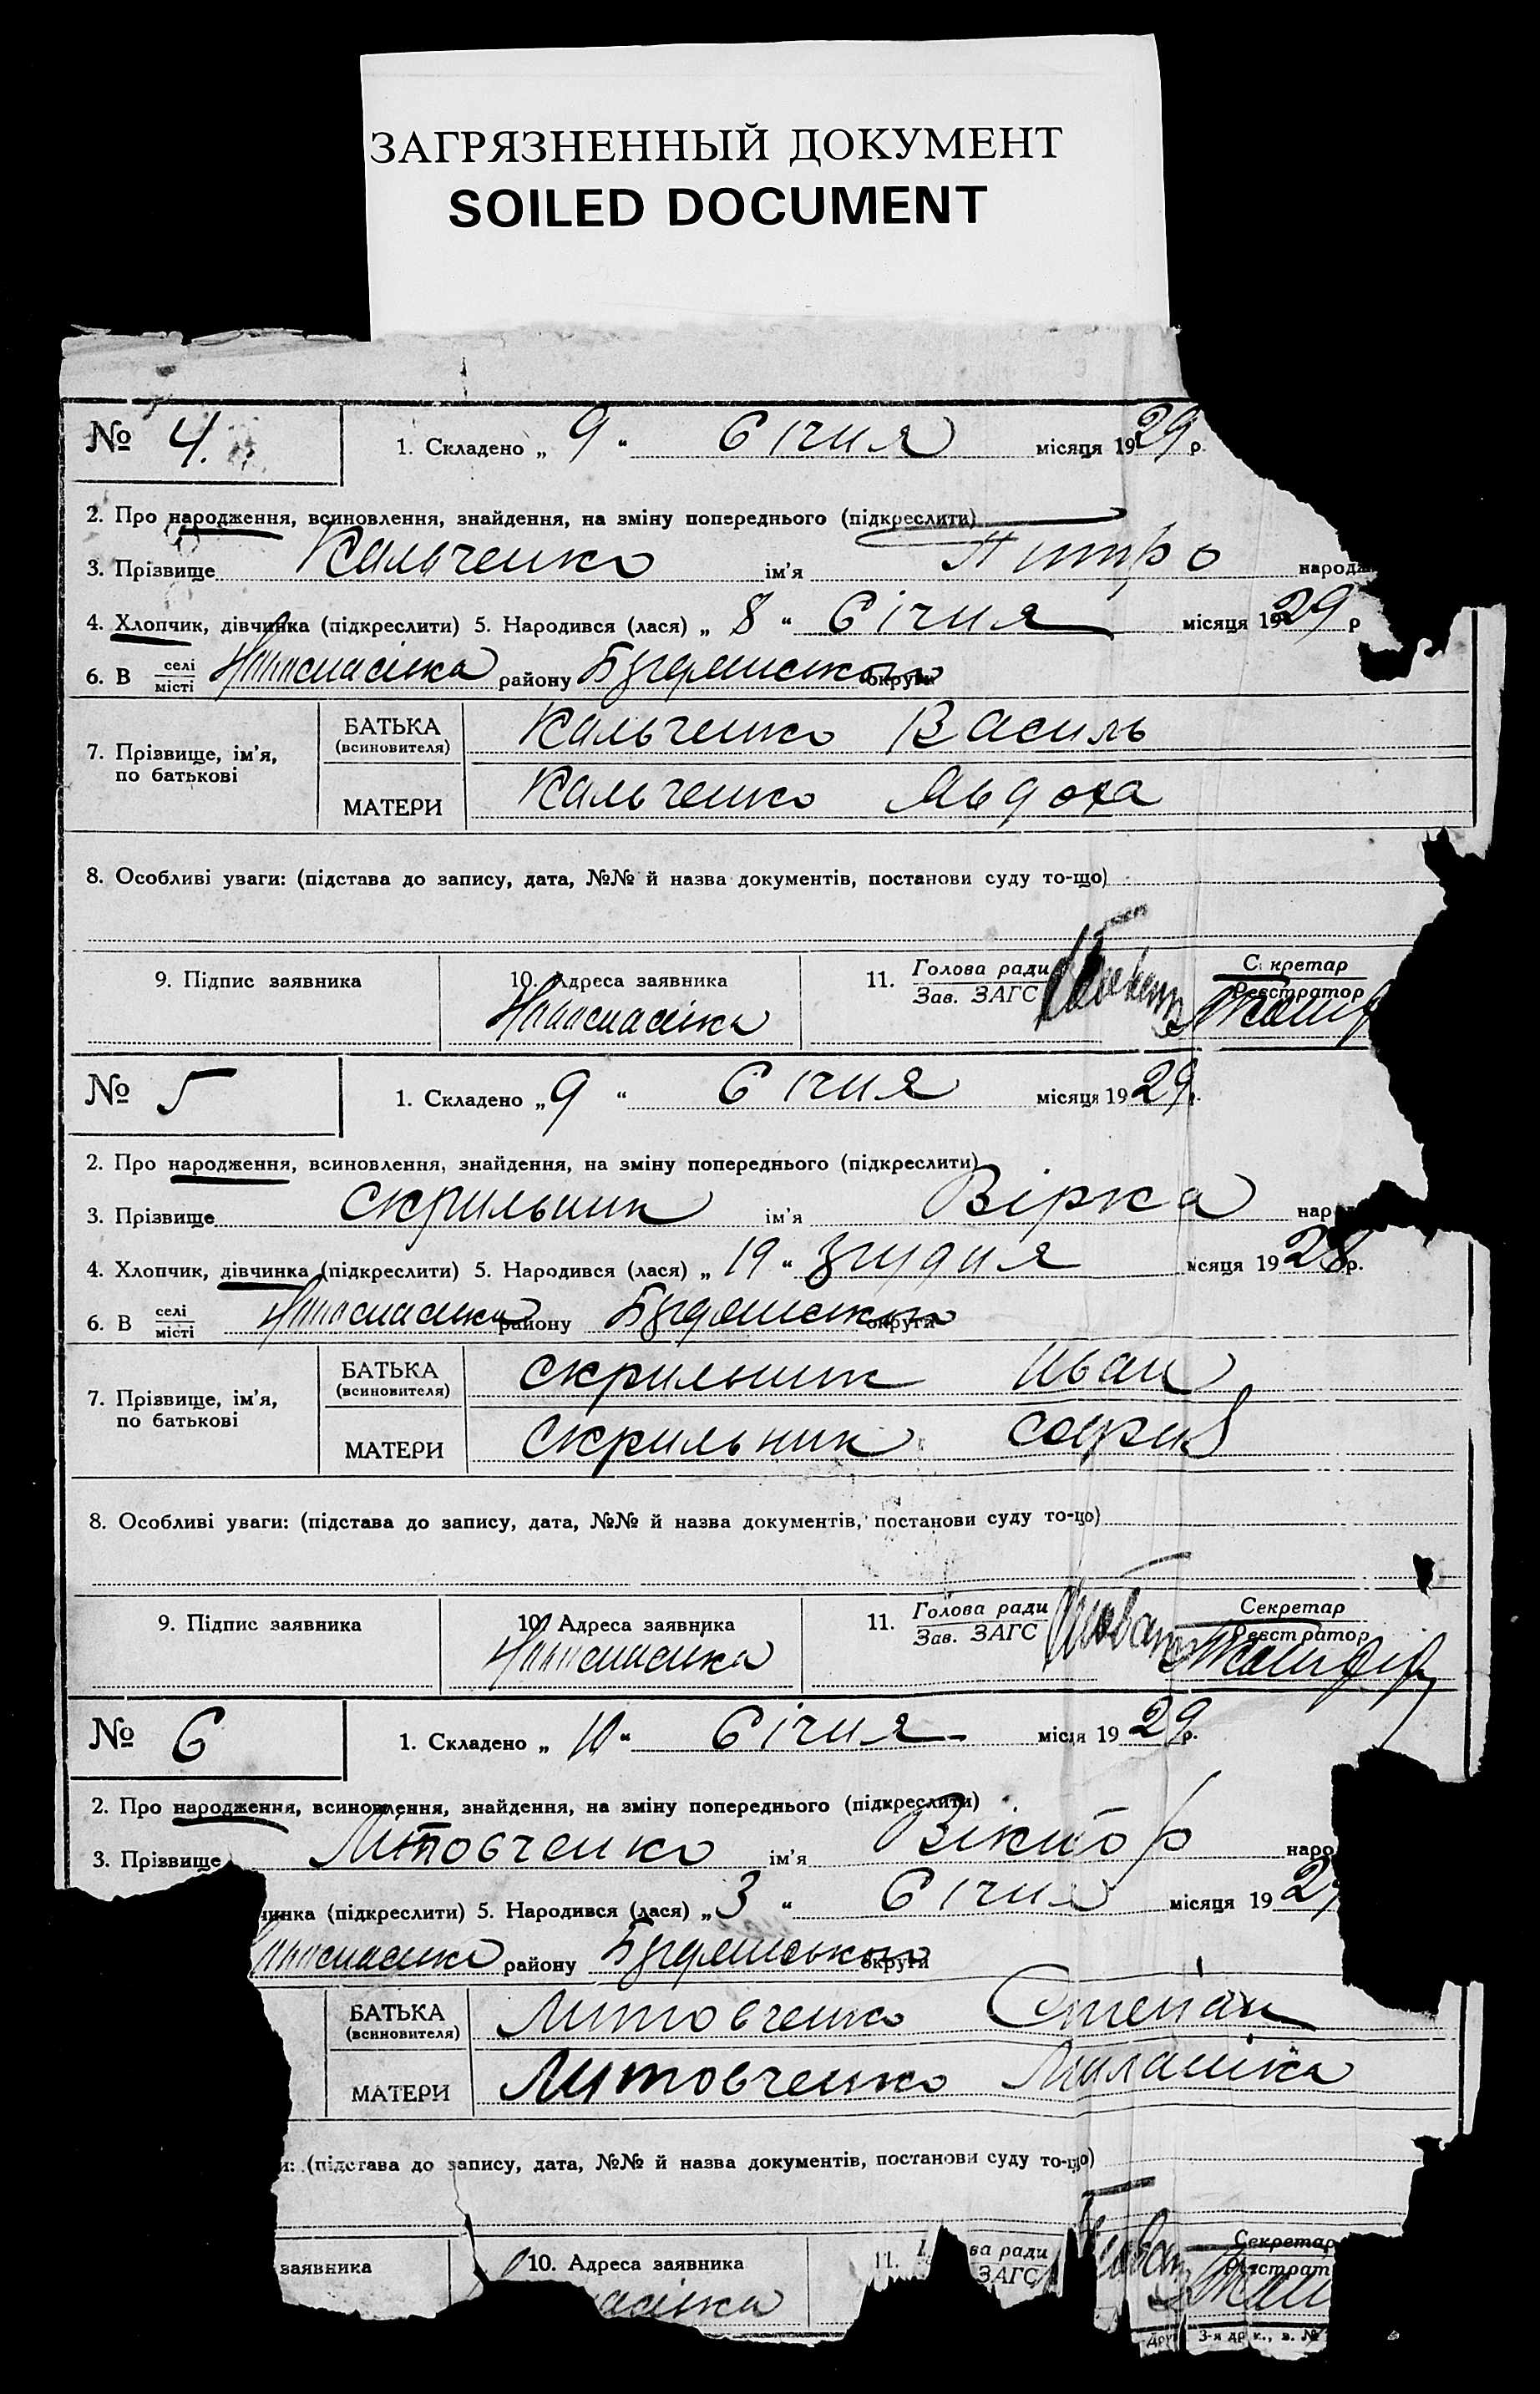 ЗАГРЯЗНЕННЫЙ ДОКУМЕНТ
SOILED DOCUMENT
№ 4. 1. Складено „ 9 “ Січня місяця 1929 р.
2. Про народження, всиновлення, знайдення, на зміну попереднього (підкреслити)
3. Прізвище Кальченко ім'я Питро народж
4. Хлопчик, дівчинка (підкреслити) 5. Народився (лася) „ 8 “ Січня місяця 1929 р
6. В селі місті району округи
7. Прізвище, ім'я, по батькові
БАТЬКА (всиновителя) Кальченко Василь
МАТЕРИ Кальченко Явдоха
8. Особливі уваги: (підстава до запису, дата, №№ й назва документів, постанови суду то-що)
9. Підпис заявника 10. Адреса заявника 11. Голова ради Зав. ЗАГС Секретар Реєстратор
№ 5 1. Складено „ 9 “ Січня місяця 1929 р.
2. Про народження, всиновлення, знайдення, на зміну попереднього (підкреслити)
3. Прізвище Скрильник ім'я Вірка наро
4. Хлопчик, дівчинка (підкреслити) 5. Народився (лася) „ 19 “ Згрудня місяця 1928 р.
6. В селі місті району округи
7. Прізвище, ім'я, по батькові
БАТЬКА (всиновителя) Скрильник Иван
МАТЕРИ Скрильник София
8. Особливі уваги: (підстава до запису, дата, №№ й назва документів, постанови суду то-що)
9. Підпис заявника 10. Адреса заявника 11. Голова ради Зав. ЗАГС Секретар Реєстратор
№ 6 1. Складено „ 10 “ Січня місяця 1929 р.
2. Про народження, всиновлення, знайдення, на зміну попереднього (підкреслити)
3. Прізвище Литовченко ім'я Віктор наро
чинка (підкреслити) 5. Народився (лася) „ 3 “ Січня місяця 1929
району округи
БАТЬКА (всиновителя) Литовченко Степан
МАТЕРИ Литовченко Миланіка
и: (підстава до запису, дата, №№ й назва документів, постанови суду то-що)
заявника 10. Адреса заявника 11. ва ради ЗАГС Секретар Реєстрат
Друг 3-я др к., з. №